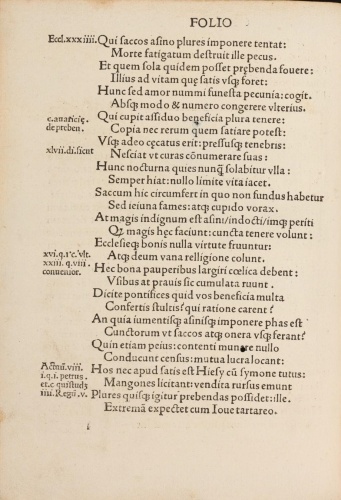 FOLIO
Eccl.xxxiiii. Qui saccos asino plures imponere tentat:
Morte fatigatum destruit ille pecus.
Et quem sola quidem posset prębenda fouere:
Illius ad vitam quę satis vsq; foret:
Hunc sed amor nummi funesta pecunia: cogit.
Absq; modo & numero congerere vlterius.
Qui cupit assiduo beneficia plura tenere:
c.auaricię.
de preben.
Copia nec rerum quem satiare potest:
Vsq; adeo cęcatus erit: pressusq; tenebris:
xlvii.di.sicut
Nesciat vt curas cõnumerare suas:
Hunc nocturna quies nunq̃ solabitur vlla:
Semper hiat: nullo limite vita iacet.
Saccum hic circumfert in quo non fundus habetur
Sed ieiuna fames: atq; cupido vorax.
At magis indignum est asini/indocti/imq; periti
Q; magis hęc faciunt: cuncta tenere volunt:
Ecclesięq; bonis nulla virtute fruuntur:
xvi.q.i.c.vlt.
Atq; deum vana relligione colunt.
xxiii.q.viii.
conuenior.
Hęc bona pauperibus largiri cœlica debent:
Vsibus at prauis sic cumulata ruunt.
Dicite pontifices quid vos beneficia multa
Confertis stultis? qui ratione carent?
An quia iumentisq; asinisq; imponere phas est
Cunctorum vt saccos atq; onera vsq; ferant?
Quin etiam peius: contenti munere nullo
Conducunt census: mutua lucra locant:
Actuũ.viii.
i.q.i. petrus.
Hos nec apud satis est Hiesy cũ symone tutus:
et.c quistudꝫ
Mangones licitant: vendita rursus emunt
iiii.Regũ.v. Plures quisq; igitur prebendas possidet: ille.
Extremã expectet cum Ioue tartareo.